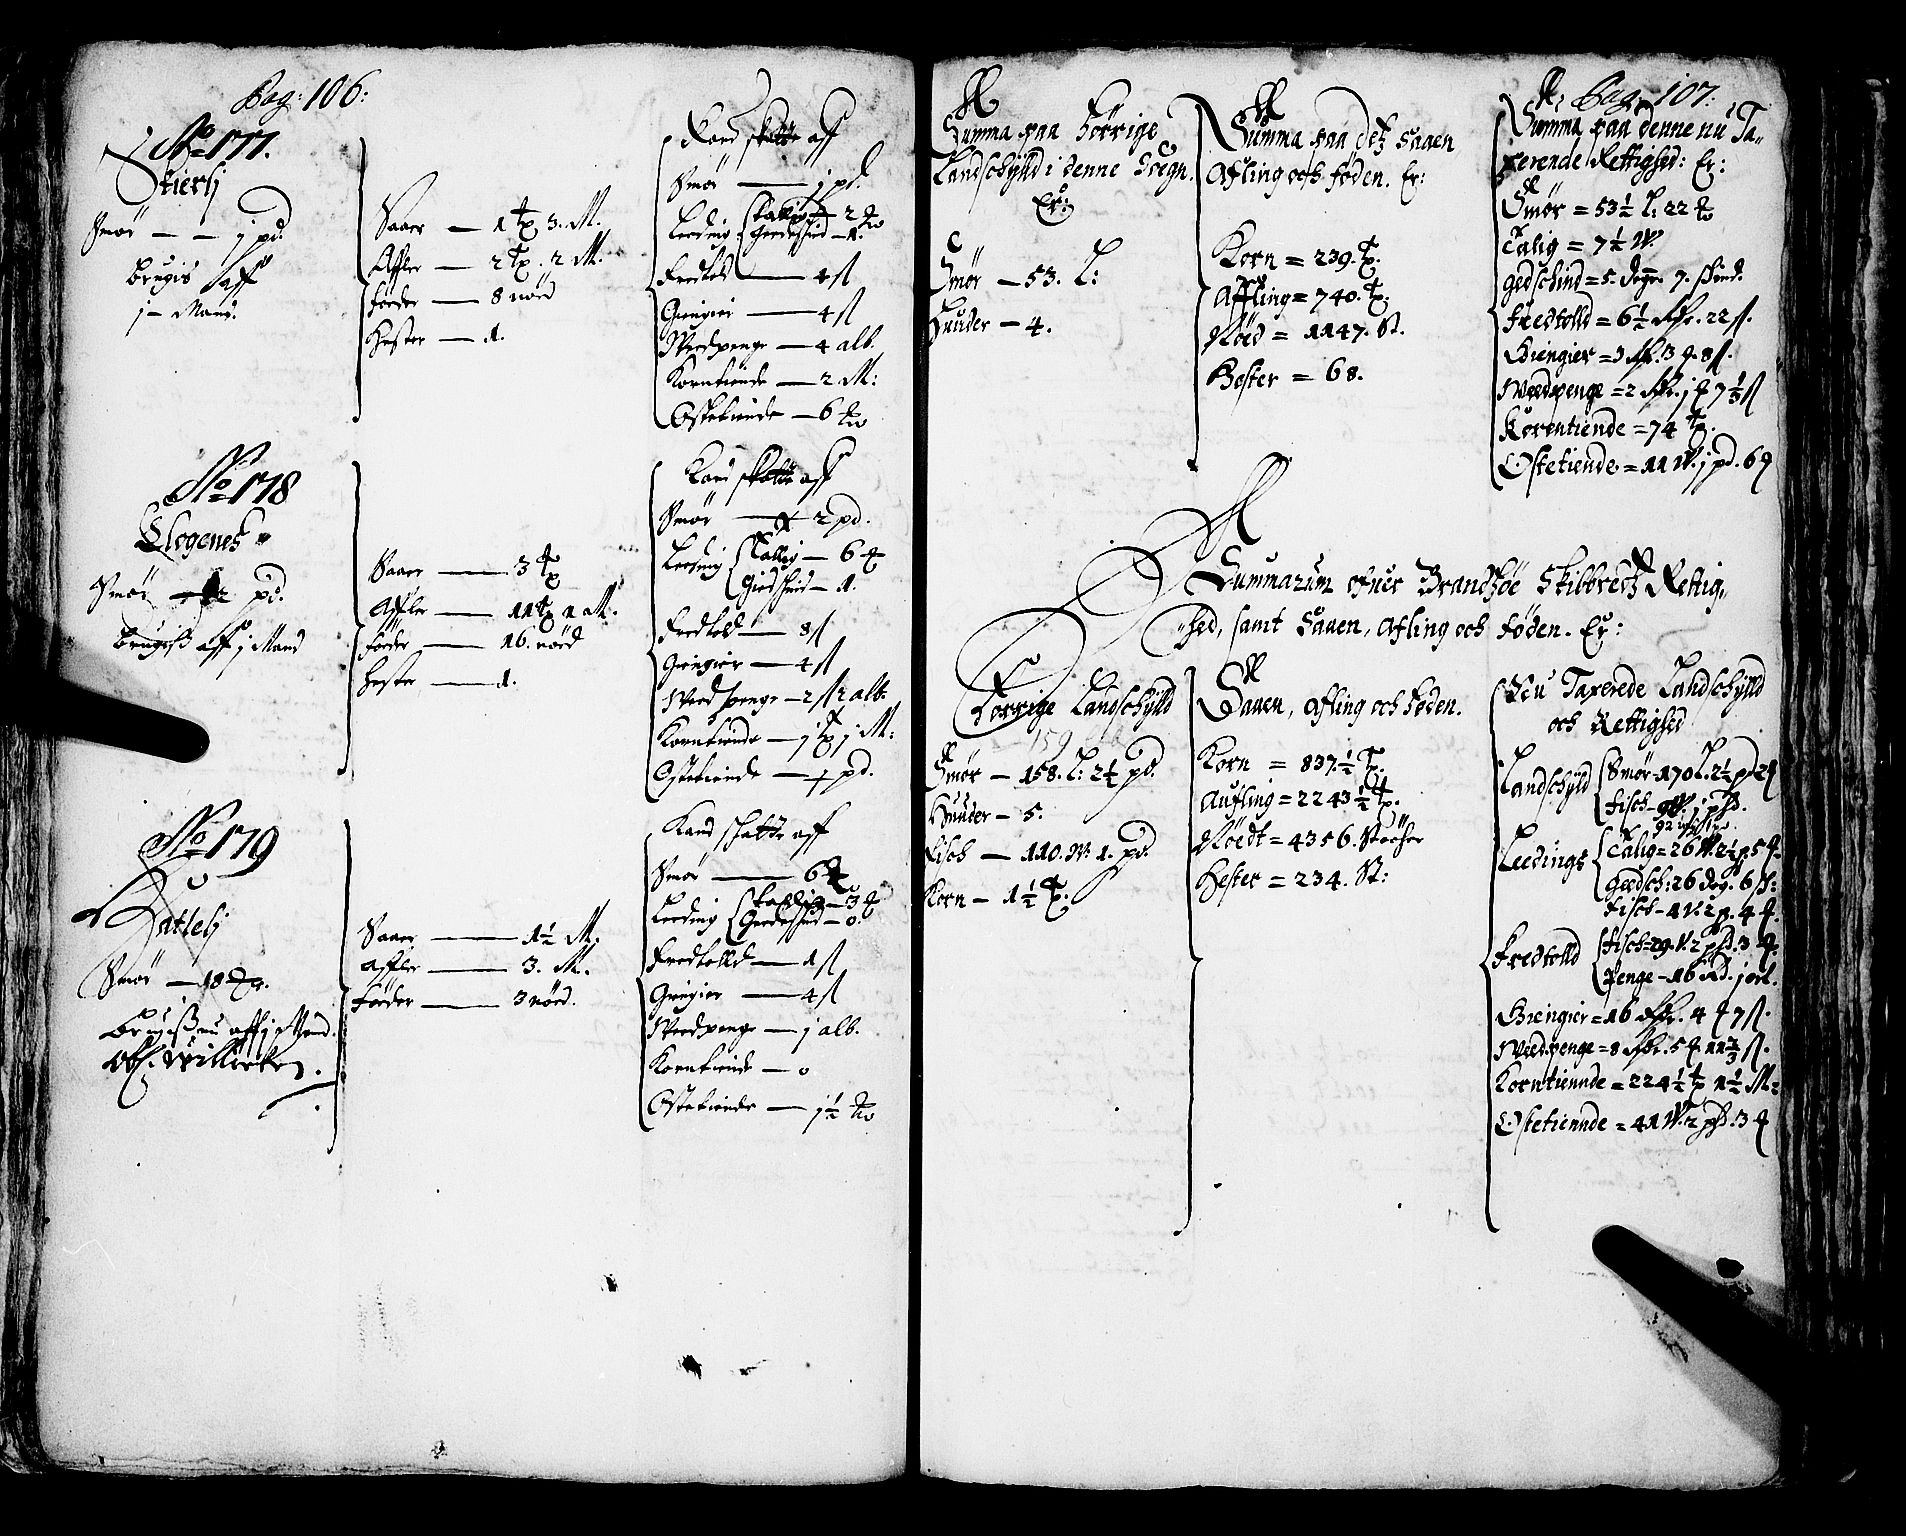 Pag: 106:
No 177.
Skierlj
Smør — — j pd.
brugis aff
j — Mand.
Saaer — 1 Tp 3. M.
Affler — 2 Tp. 2 M.
føder — 8 nød
Hester — 1.
Kand skatte aff
Smør — j pd.
Leeding
Tallig — 2
Geedeskind — 1.
Fredtold — 4 ß
Giengier — 4 ß
Weedpenge — 4 alb.
Korntiende — 2 M:
Ostetiende — 6
No 178
Smør — 2 pd.
brugiß aff j Mand
Saaer — 3 Tp
Affler — 11 Tp 1 M.
føder — 16. nød
hester — 1.
Kand skatte aff
Smør — 2 pd.
Leeding
Tallig — 6
Giedskind — 1.
Fredtold — 8 ß
Giengier — 4 ß
Weedpenge — 2 ß 2 alb.
Korntiende — j Tp j M:
Ostetiende — pd.
No 179
Hatlelj
Smør — 18
brugiß nu aff j Mand.
Saaer — 1½ M.
affler — 3. M.
føder — 3 nød.
Kand skatte aff
Smør — 6
Leeding
Tallig — 3
Geedeskind — 0.
Fredtolld — 1 ß
Giengier — 4 ß
Weedpenge — j alb.
Korntiende — 0
Ostetiende — j½
Pag: 107:
Summa paa forrige
Landschylld i denne Sogn.
Er:
Smør — 53. L:
Huuder — 4.
Summa paa detz Saaen
Afling och føden. Er:
Korn = 239. Tp.
Affling = 740. Tp:
Nøed = 1147. St.
Hester = 68.
Summa paa denne nu Ta-
xerende Rettighed: Er:
Smør = 53½ L: 22
Talig = 7½ W.
Gedschind = 5. degr. 7. skind.
Fredtolld = 6½ Rdr. 22 ß.
Giengier = 3 Rdr. 3 8 ß.
Weedpenge = 2 Rdr. j 7⅓ ß
Korentiende = 74 Tp.
Ostetiende = 11 W. j pd. 6
Summarum ofuer Brandsøe Skibbredtz Rettig-
hed, samt Saaen, Afling och føden. Er:
Forrige Landschylld
159
Smør — 158. L: 2½ pd.
Huuder — 5.
Fisch — 110. W: 1. pd.
Korn — 1½ Tp:
Saaen, Afling och føden.
Korn = 837½ Tp.
Aufling = 2243½ Tp.
Nøedt = 4356. Støcher
Hester = 234. St:
Nu Taxerede Landschylld
och Rettighed
Landschyld
Smør — 170 L. 2½ pd 2
Fisch — 9 W. j pd.
Leedings
Talig = 26 W. 2½ p. 5
Geedsch: 26 deg. 6 sk:
Fisch — 4 W. 2 p. 4
Fredtolld
Fisch = 29. W. 2 pd. 3
Penge — 16 Rd. j ort.
Giengier = 16 Rdr. 4 7 ß.
Weedpenge = 8 Rdr. 5 11⅔ ß.
Korntiennde = 224½ Tp 1½ M:
Ostetiennde = 41 W. 2 pd. 3